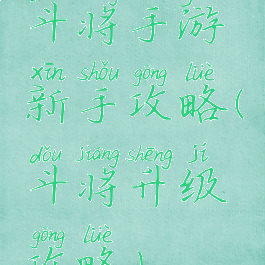 斗将手游
xīn shǒu gōng lüè
新手攻略(
dǒu jiàng shēng jí
斗将升级
gōng lüè
攻略)